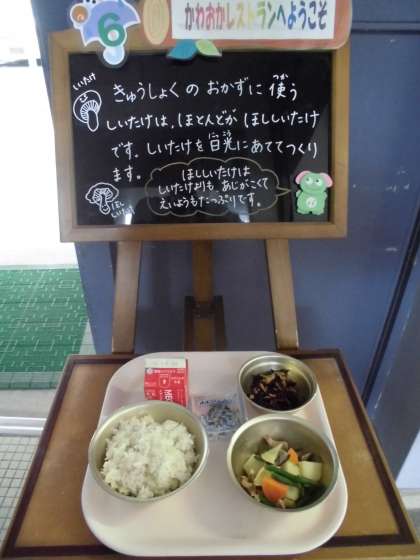 6
かわおかレストランへようこそ
しいたけ
きゅうしょくの おかずに 使う
しいたけは、ほとんどが ほししいたけ
です。しいたけを 日光に あててつくり
ます。
ほししいたけは
しいたけよりも、あじがこくて
えいようもたっぷりです。
ほし
しいたけ